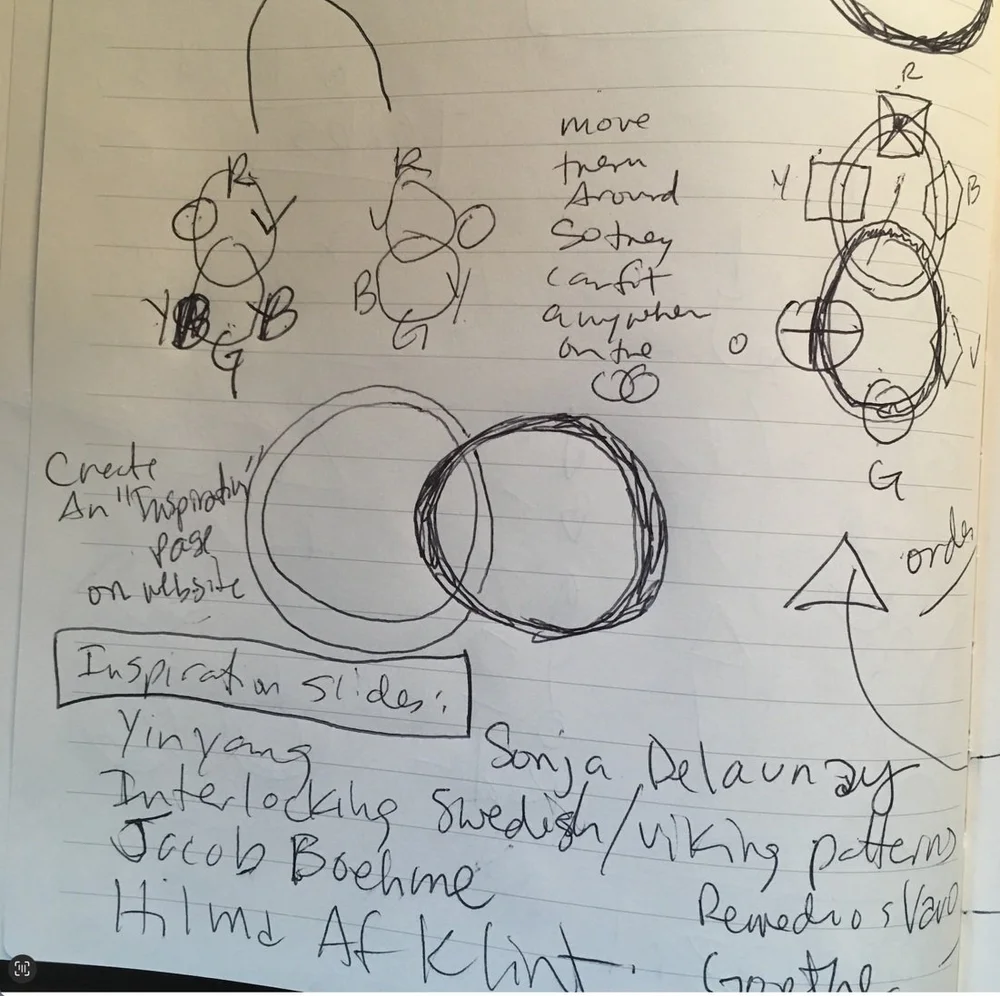 R
V
Y B
YB
G
R
V
O
B
Y
G
move
them
Around
So they
can fit
anywhere
on the
R
Y
B
O
V
G
order
Create
An "Inspiration"
page
on website
Inspiration Slides:
Yinyang
Sonja Delaunay
Interlocking Swedish/Viking patterns
Jacob Boehme
Remedios Varo
Hilma Af Klint.
Goethe